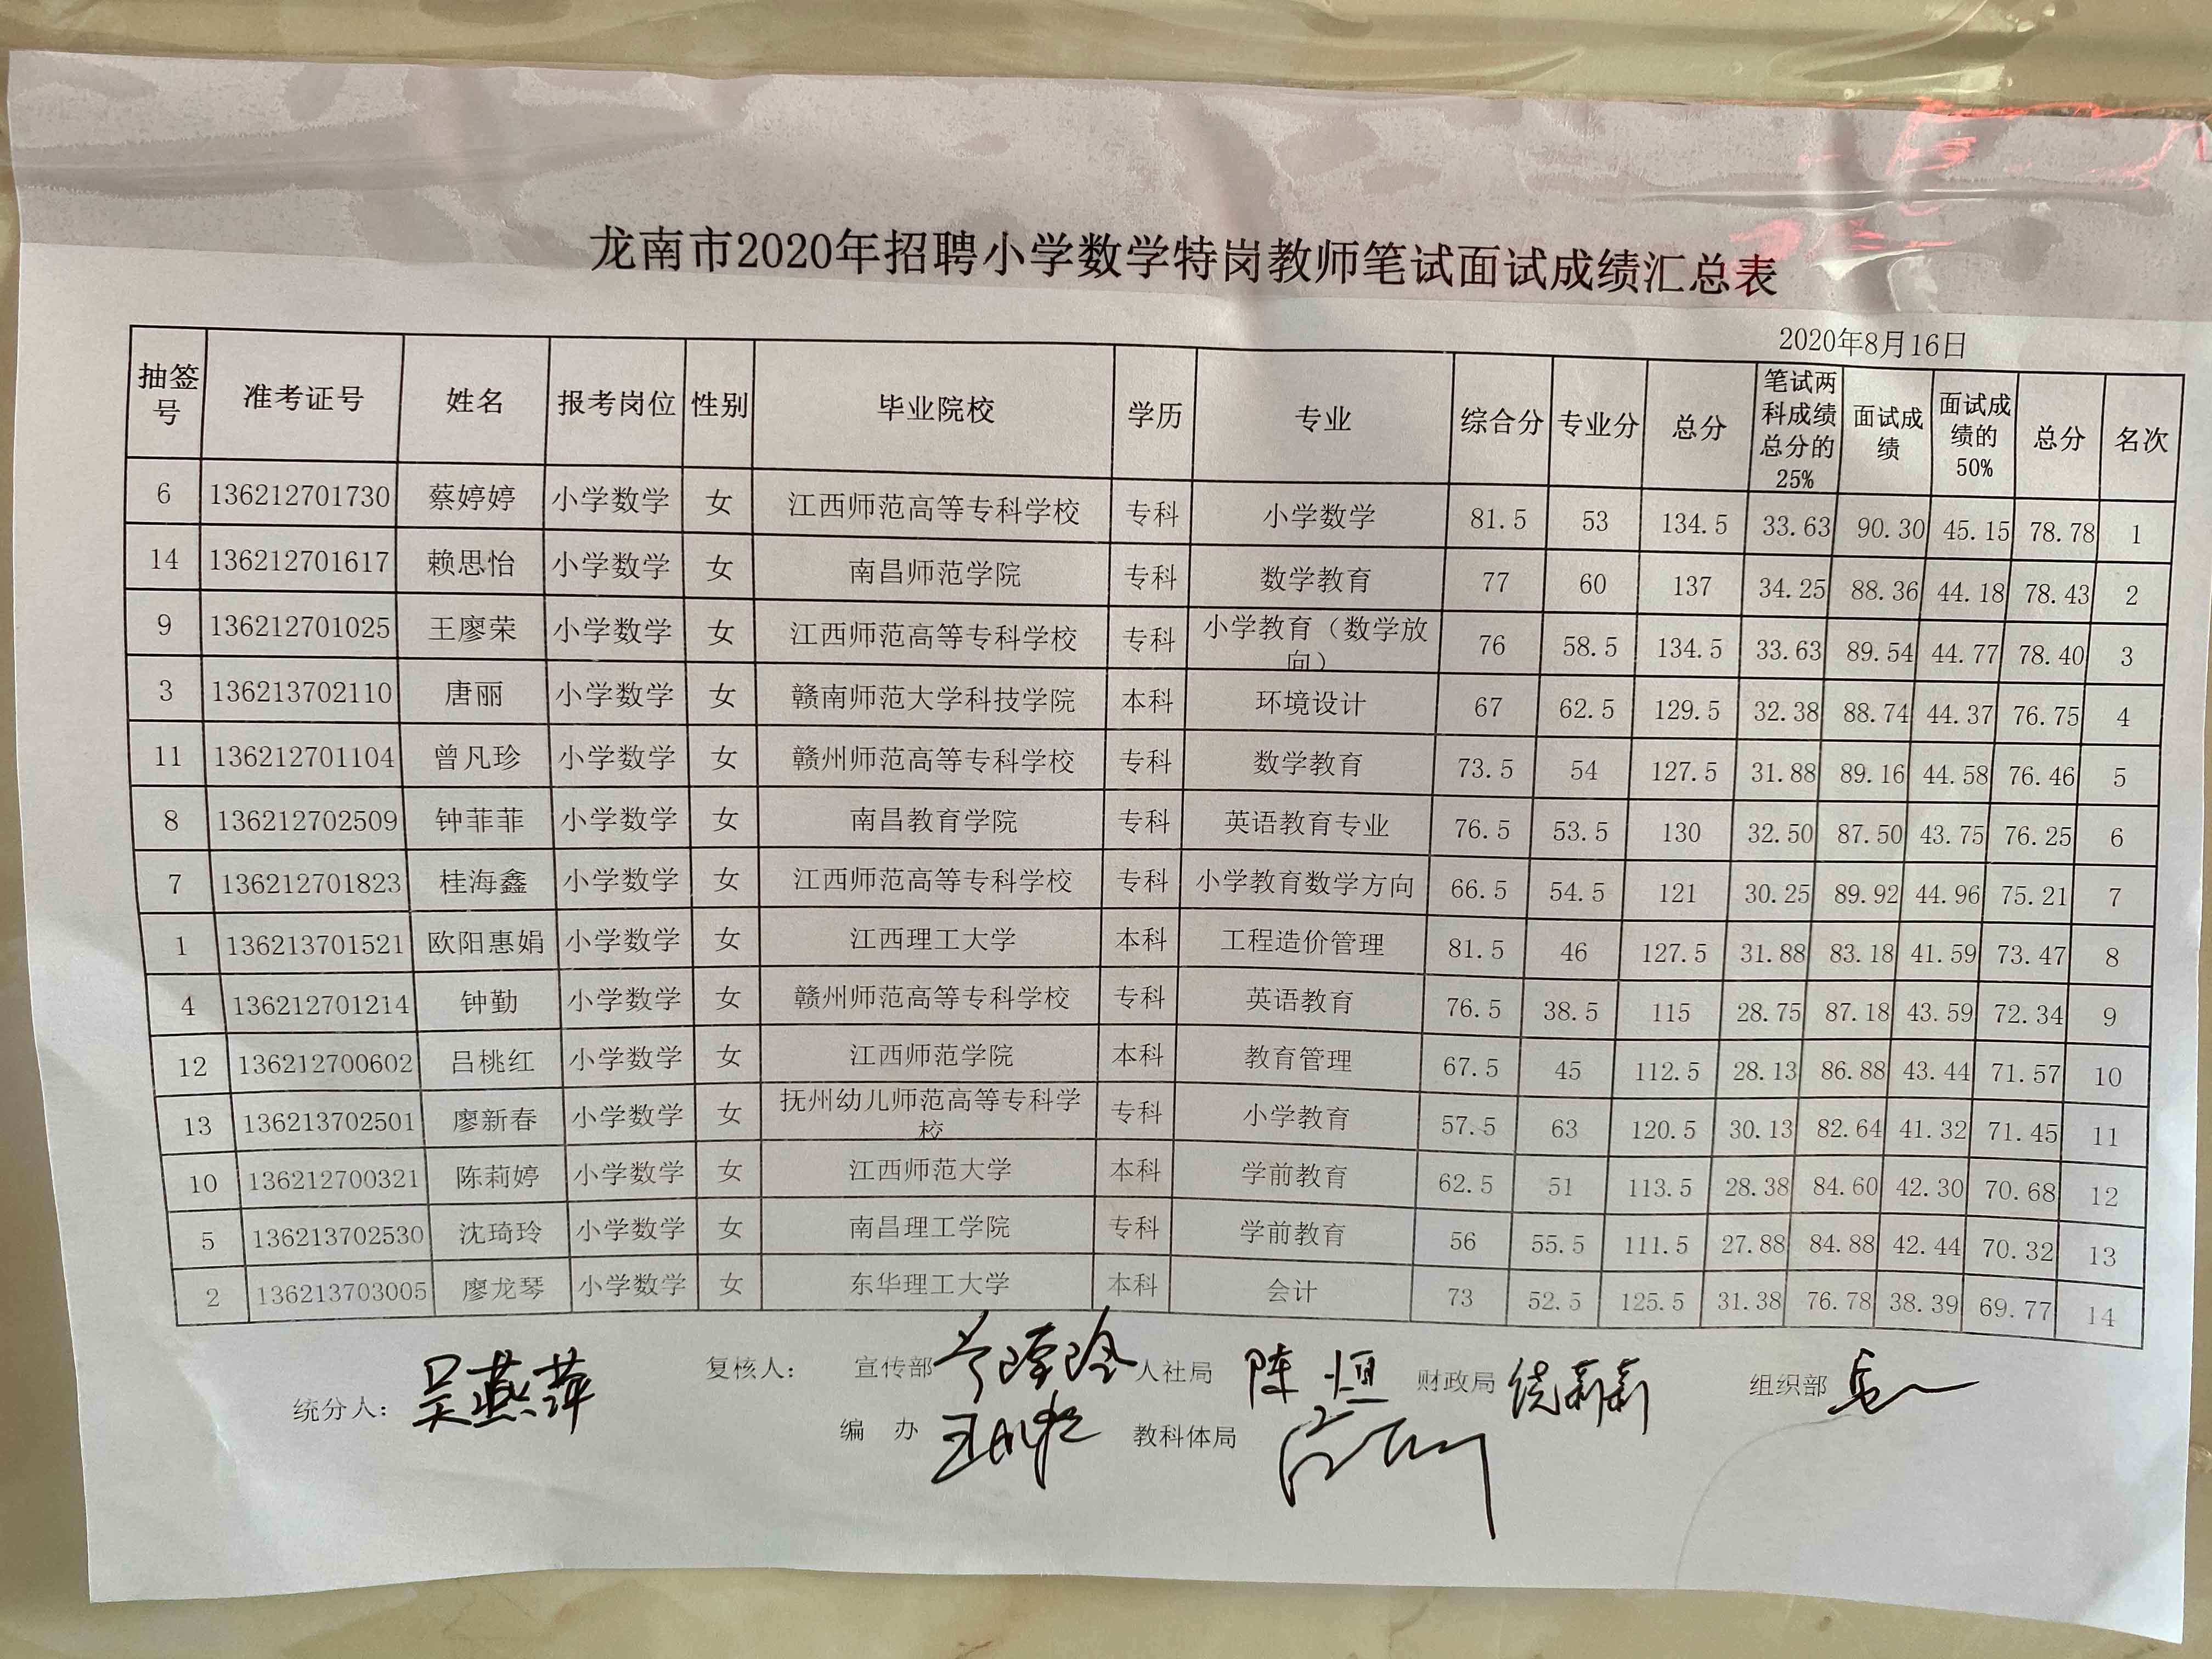 龙南市2020年招聘小学数学特岗教师笔试面试成绩汇总表
2020年8月16日
抽签号 准考证号 姓名 报考岗位 性别 毕业院校 学历 专业 综合分 专业分 总分 笔试两科成绩总分的25% 面试成绩 面试成绩的50% 总分 名次
6 136212701730 蔡婷婷 小学数学 女 江西师范高等专科学校 专科 小学数学 81.5 53 134.5 33.63 90.30 45.15 78.78 1
14 136212701617 赖思怡 小学数学 女 南昌师范学院 专科 数学教育 77 60 137 34.25 88.36 44.18 78.43 2
9 136212701025 王廖荣 小学数学 女 江西师范高等专科学校 专科 小学教育（数学放向） 76 58.5 134.5 33.63 89.54 44.77 78.40 3
3 136213702110 唐丽 小学数学 女 赣南师范大学科技学院 本科 环境设计 67 62.5 129.5 32.38 88.74 44.37 76.75 4
11 136212701104 曾凡珍 小学数学 女 赣州师范高等专科学校 专科 数学教育 73.5 54 127.5 31.88 89.16 44.58 76.46 5
8 136212702509 钟菲菲 小学数学 女 南昌教育学院 专科 英语教育专业 76.5 53.5 130 32.50 87.50 43.75 76.25 6
7 136212701823 桂海鑫 小学数学 女 江西师范高等专科学校 专科 小学教育数学方向 66.5 54.5 121 30.25 89.92 44.96 75.21 7
1 136213701521 欧阳惠娟 小学数学 女 江西理工大学 本科 工程造价管理 81.5 46 127.5 31.88 83.18 41.59 73.47 8
4 136212701214 钟勤 小学数学 女 赣州师范高等专科学校 专科 英语教育 76.5 38.5 115 28.75 87.18 43.59 72.34 9
12 136212700602 吕桃红 小学数学 女 江西师范学院 本科 教育管理 67.5 45 112.5 28.13 86.88 43.44 71.57 10
13 136213702501 廖新春 小学数学 女 抚州幼儿师范高等专科学校 专科 小学教育 57.5 63 120.5 30.13 82.64 41.32 71.45 11
10 136212700321 陈莉婷 小学数学 女 江西师范大学 本科 学前教育 62.5 51 113.5 28.38 84.60 42.30 70.68 12
5 136213702530 沈琦玲 小学数学 女 南昌理工学院 专科 学前教育 56 55.5 111.5 27.88 84.88 42.44 70.32 13
2 136213703005 廖龙琴 小学数学 女 东华理工大学 本科 会计 73 52.5 125.5 31.38 76.78 38.39 69.77 14
统分人：吴燕萍 复核人： 宣传部 人社局 陈恒 财政局 组织部
编 办 教科体局